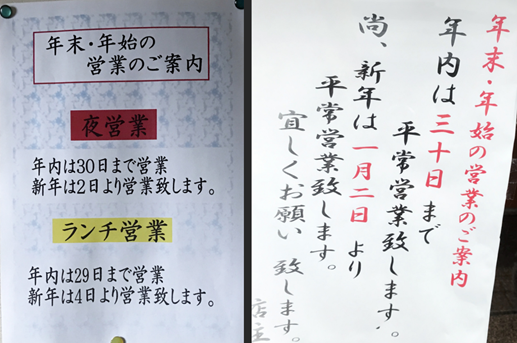 年末・年始の
営業のご案内
夜営業
年内は30日まで営業
新年は2日より営業致します。
ランチ営業
年内は29日まで営業
新年は4日より営業致します。
年末・年始の営業のご案内
年内は三十日まで
平常営業致します。
尚、新年は一月二日より
平常営業致します。
宜しくお願い致します。
店主